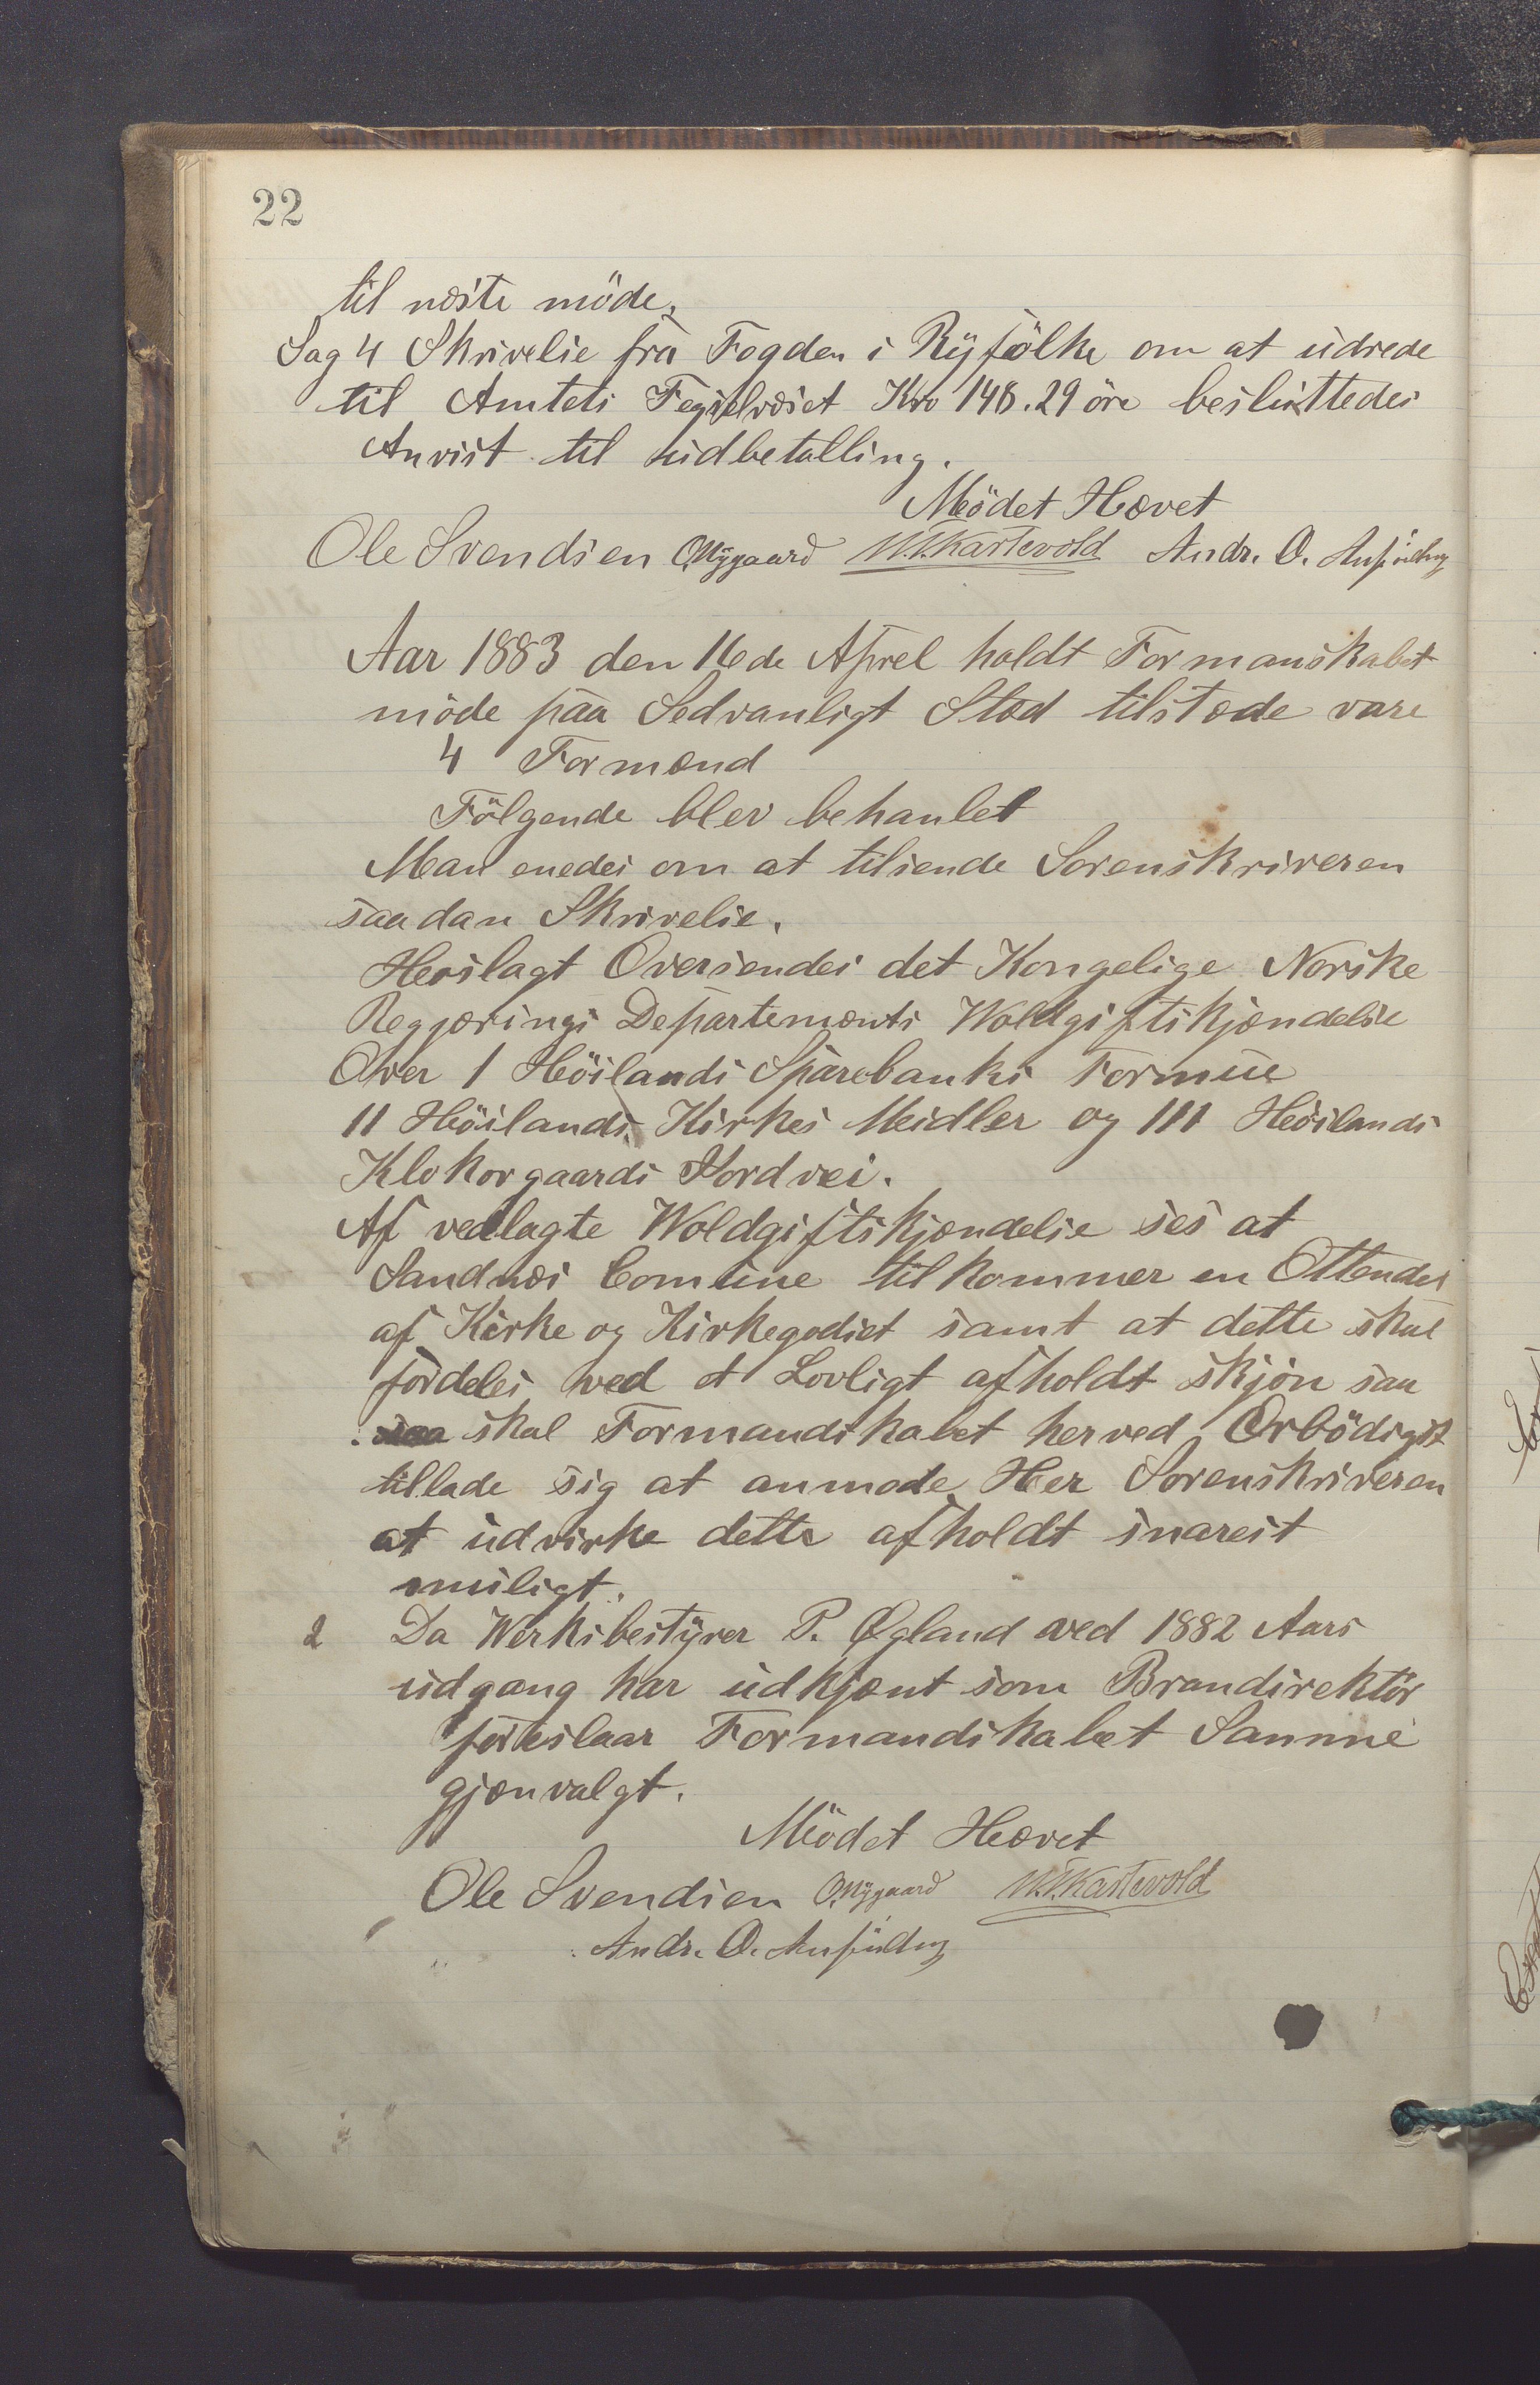 22
til næste möde.
Sag 4 Skrivelse fra Fogden i Ryfölke om at udrede
til Amtets Fegselvæset Kro 148.29 öre besluttedes
Anvist til udbetalling.
Mödet Hævet
Ole Svendsen O. Nygaard Andr. O.
Aar 1883 den 16de Aprel holdt Formanskabet
möde paa Sedvanligt Stæd tilstæde vare
4 Formænd
Fölgende blev behanlet
Man enedes om at tilsende Sorenskriveren
saadan Skrivelse.
Hoslagt Oversendes det Kongelige Norske
Regjærings Departemænts Woldgiftskjændelse
Over I Höilands Sparebanks Formue
II Höilands Kirkes Meidler og III Höilands
Klokorgaards Jordvei.
Af vedlagte Woldgiftskjændelse ses at
Sandnæs Comune tilkommer en Ottendes
af Kirke og Kirkegodset samt at dette skal
fordeles ved et Lovligt afholdt skjön saa
saa skal Formandskabet herved Ærbödigst
tillade sig at anmode Her Sorenskriveren
at udvirke dette afholdt snarest
muligt.
2 Da Werksbestyrer P. Øgland ved 1882 Aars
udgang har udkjænt som Brandirektör
föreslaar Formandskabet Samme
gjænvalgt.
Mödet Hævet
Ole Svendsen O. Nygaard
Andr. O.